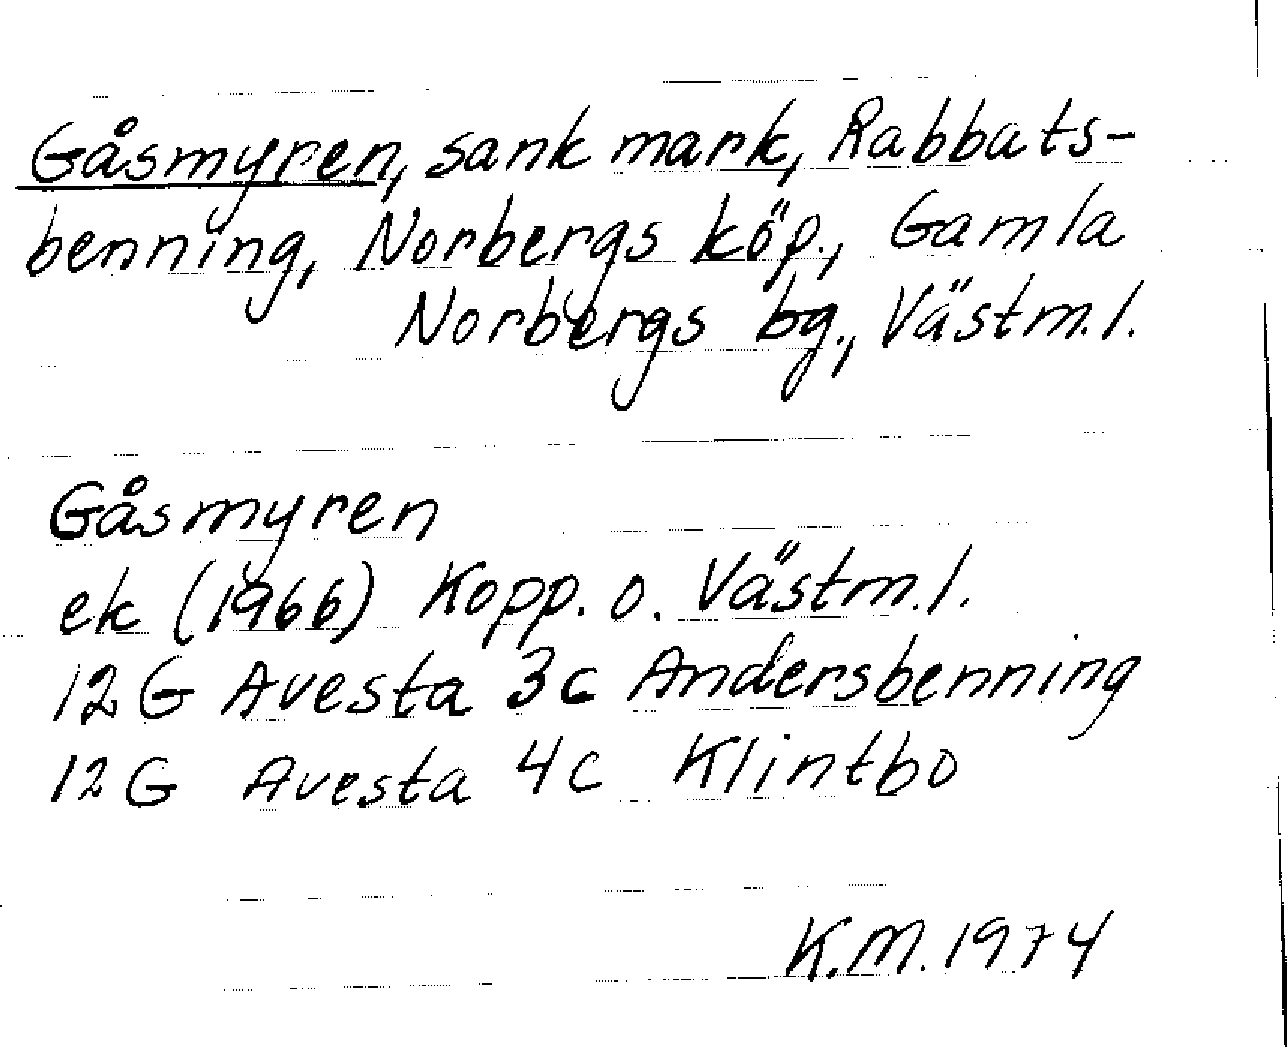 Gåsmyren, sank mark, Rabbats-
benning, Norbergs köp., Gamla
Norbergs bg., Västm.l.
Gåsmyren
ek (1966) Kopp. o. Västm.l.
12G Avesta 3c Andersbenning
12G Avesta 4c Klintbo
K.M. 1974